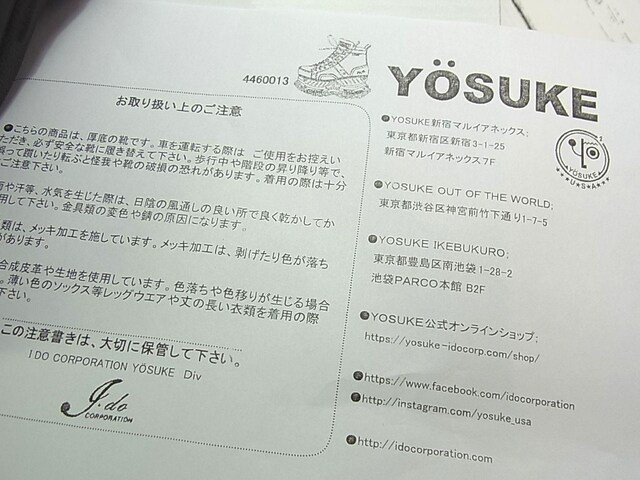 4460013
YÖSUKE
お取り扱い上のご注意
●こちらの商品は、厚底の靴です。車を運転する際は ご使用をお控えい
ただき、必ず安全な靴に履き替えて下さい。歩行中や階段の昇り降り等で、
って躓いたり転ぶと怪我や靴の破損の恐れがあります。着用の際は十分
ご注意下さい。
や汗等、水気を生じた際は、日陰の風通しの良い所で良く乾かしてか
用して下さい。金具類の変色や錆の原因になります。
類は、メッキ加工を施しています。メッキ加工は、剥げたり色が落ち
があります。
合成皮革や生地を使用しています。色落ちや色移りが生じる場合
。薄い色のソックス等レッグウエアや丈の長い衣類を着用の際
下さい。
この注意書きは、大切に保管して下さい。
I DO CORPORATION YÖSUKE Div
I.do
CORPORATION
●YOSUKE新宿マルイアネックス;
東京都新宿区新宿3-1-25
新宿マルイアネックス7F
YOSUKE
★★★U★S★A★★★
●YOSUKE OUT OF THE WORLD;
東京都渋谷区神宮前竹下通り1-7-5
●YOSUKE IKEBUKURO;
東京都豊島区南池袋1-28-2
池袋PARCO本館 B2F
●YOSUKE公式オンラインショップ;
https://yosuke-idocorp.com/shop/
●https://www.facebook.com/idocorporation
●http://instagram.com/yosuke_usa
●http://idocorporation.com